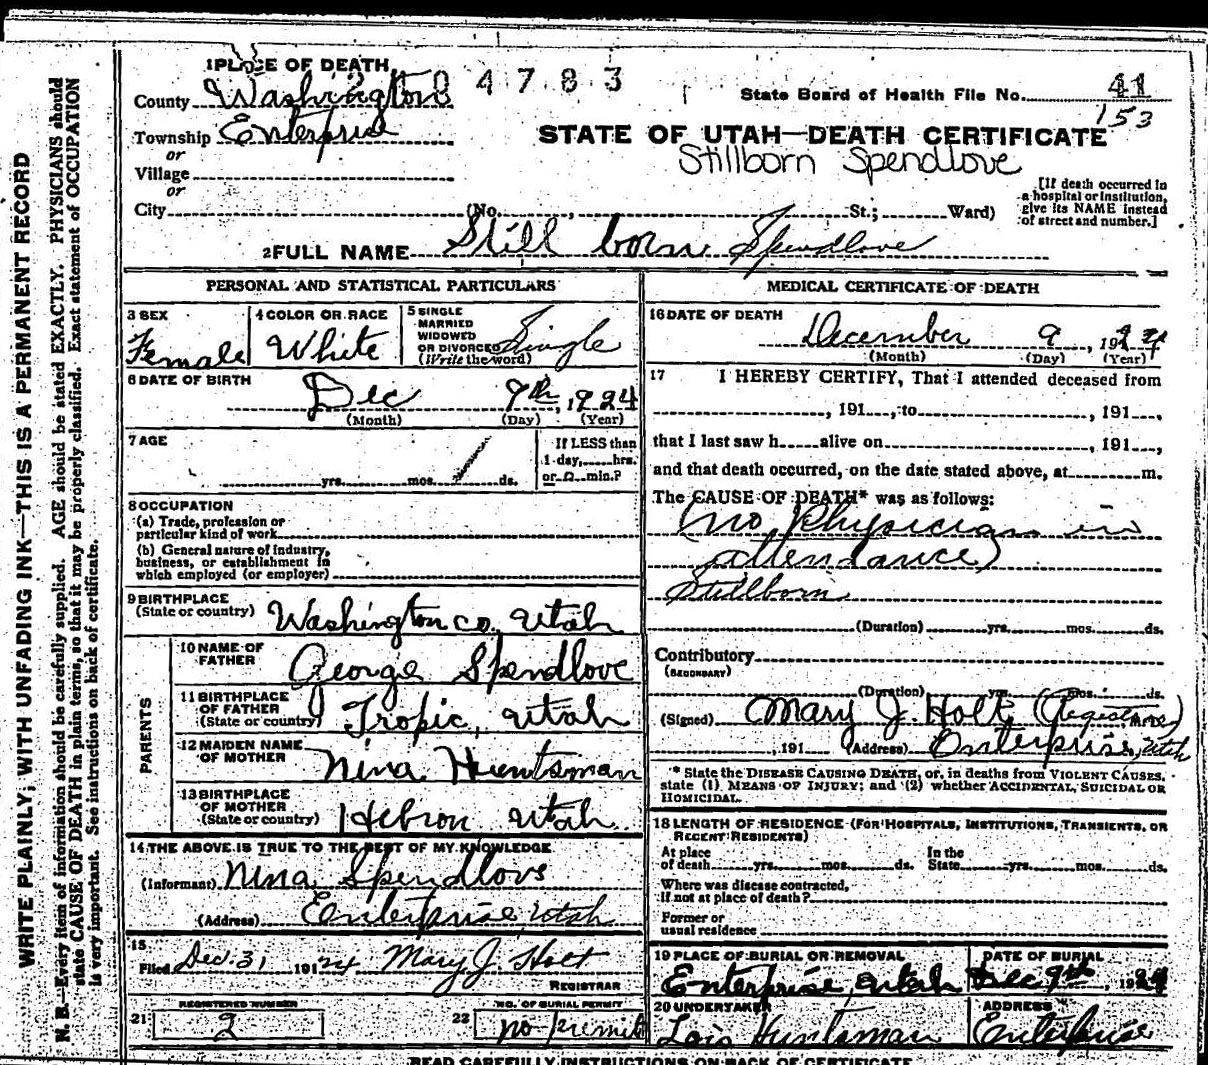 1 PLACE OF DEATH
4 7 8 3
County Washington
State Board of Health File No. 41
153
Township Enterprise
STATE OF UTAH—DEATH CERTIFICATE
or
Stillborn Spendlove
Village
or
City (No. , St.; Ward)
[If death occurred in
a hospital or institution,
give its NAME instead
of street and number.]
2 FULL NAME Still born Spendlove
PERSONAL AND STATISTICAL PARTICULARS
3 SEX
Female
4 COLOR OR RACE
White
5 SINGLE
MARRIED
WIDOWED
OR DIVORCED
(Write the word)
Single
6 DATE OF BIRTH
Dec 9th, 1924
(Month) (Day) (Year)
7 AGE
yrs. mos. ds.
If LESS than
1 day, hrs.
or min.?
8 OCCUPATION
(a) Trade, profession or
particular kind of work
(b) General nature of industry,
business, or establishment in
which employed (or employer)
9 BIRTHPLACE
(State or country) Washington co. Utah
PARENTS
10 NAME OF
FATHER George Spendlove
11 BIRTHPLACE
OF FATHER
(State or country) Tropic, Utah
12 MAIDEN NAME
OF MOTHER Nina Huntsman
13 BIRTHPLACE
OF MOTHER
(State or country) Hebron Utah.
14 THE ABOVE IS TRUE TO THE BEST OF MY KNOWLEDGE
(Informant) Nina Spendlove
(Address) Enterprise Utah
15
Filed Dec. 31 191 24 Mary J. Holt
REGISTRAR
REGISTERED NUMBER
21 2
NO. OF BURIAL PERMIT
22 no permit
MEDICAL CERTIFICATE OF DEATH
16 DATE OF DEATH
December 9, 1924
(Month) (Day) (Year)
17 I HEREBY CERTIFY, That I attended deceased from
, 191 , to , 191 ,
that I last saw h alive on , 191 ,
and that death occurred, on the date stated above, at m.
The CAUSE OF DEATH* was as follows:
(no Physician in
attendance)
Stillborn
(Duration) yrs. mos. ds.
Contributory
(SECONDARY)
(Duration) yrs. mos. ds.
(Signed) Mary J. Holt (Registrar)
, 191 (Address) Enterprise, Utah
* State the DISEASE CAUSING DEATH, or, in deaths from VIOLENT CAUSES,
state (1) MEANS OF INJURY; and (2) whether ACCIDENTAL, SUICIDAL OR
HOMICIDAL.
18 LENGTH OF RESIDENCE (FOR HOSPITALS, INSTITUTIONS, TRANSIENTS, OR
RECENT RESIDENTS)
At place In the
of death yrs. mos. ds. State yrs. mos. ds.
Where was disease contracted,
if not at place of death?
Former or
usual residence
19 PLACE OF BURIAL OR REMOVAL
Enterprise, Utah
DATE OF BURIAL
Dec 9th, 1924
20 UNDERTAKER
Lois Huntsman
ADDRESS
Enterprise
READ CAREFULLY INSTRUCTIONS ON BACK OF CERTIFICATE
WRITE PLAINLY, WITH UNFADING INK—THIS IS A PERMANENT RECORD
N. B.—Every item of information should be carefully supplied. AGE should be stated EXACTLY. PHYSICIANS should
state CAUSE OF DEATH in plain terms, so that it may be properly classified. Exact statement of OCCUPATION
is very important. See instructions on back of certificate.